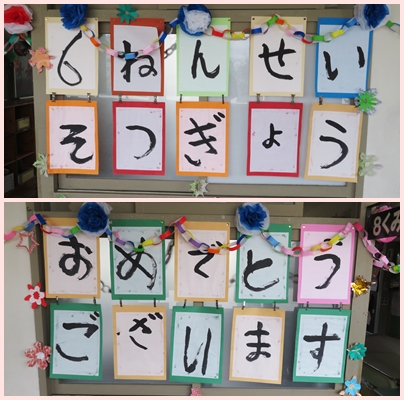 6ねんせい
そつぎょう
おめでとう
ございます
8くみ